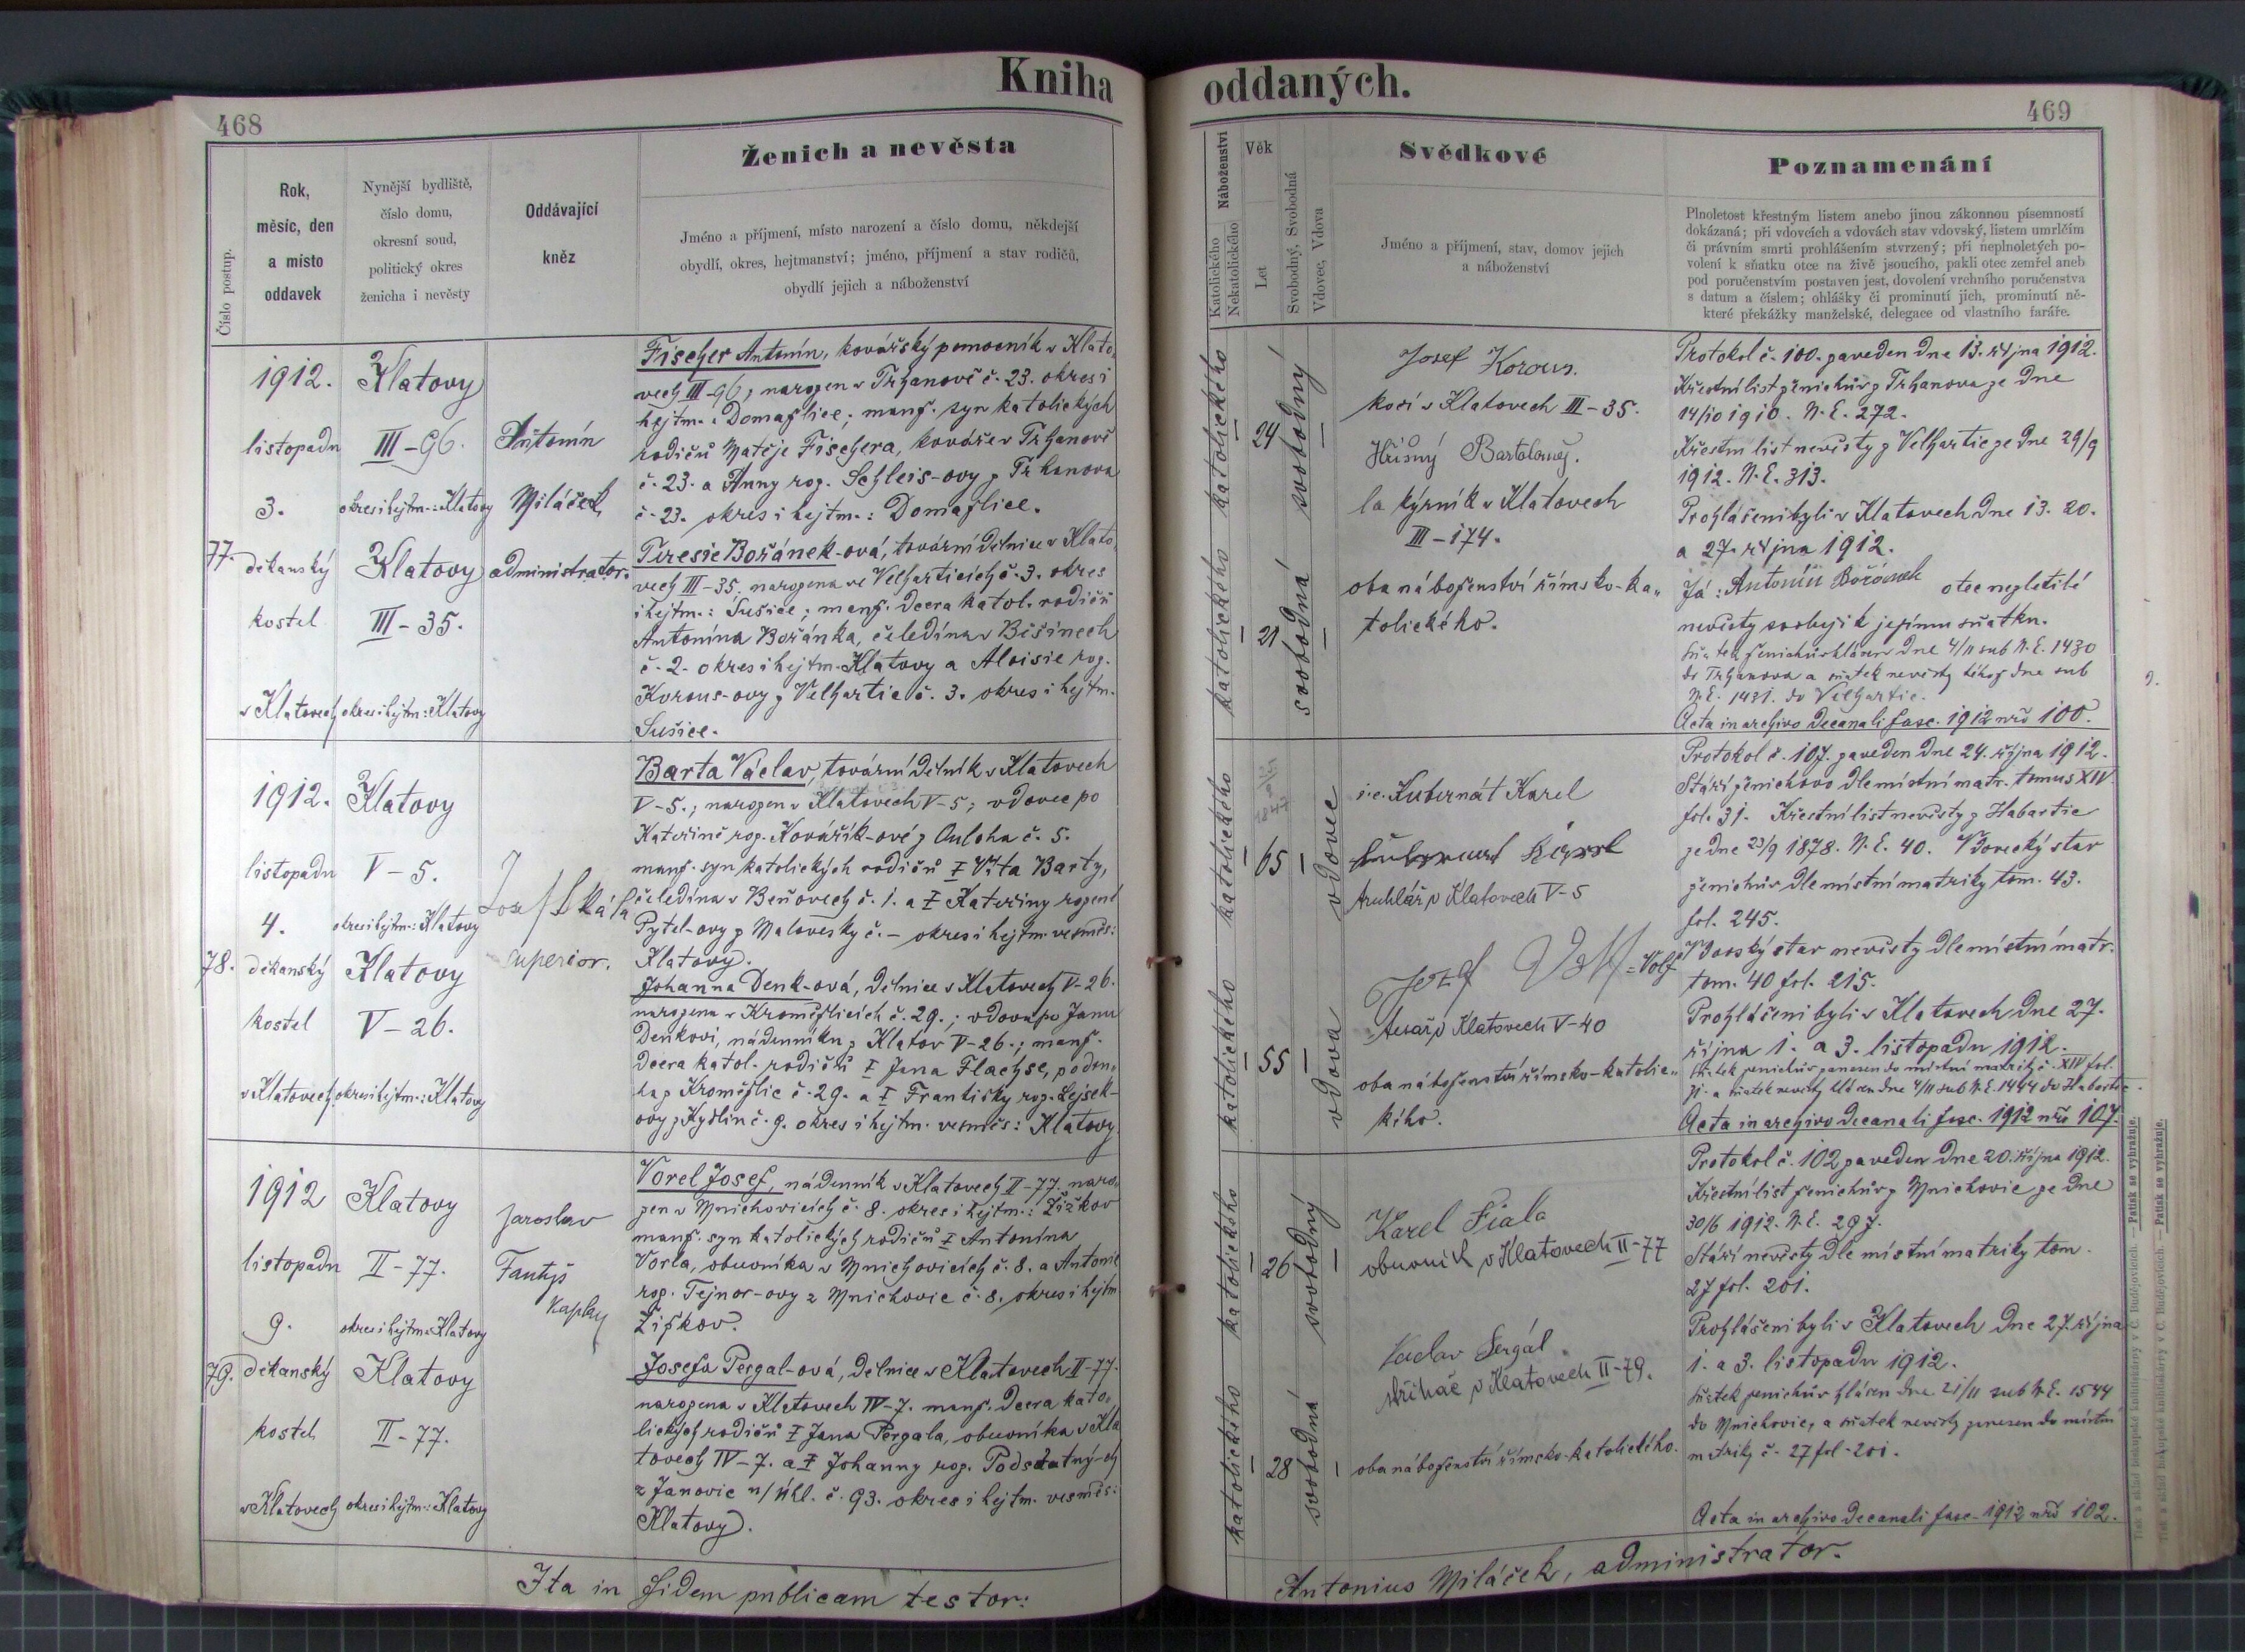 Kniha oddaných.
468
469
Číslo postup.
Rok,
měsíc, den
a místo
oddavek
Nynější bydliště,
číslo domu,
okresní soud,
politický okres
ženicha i nevěsty
Oddávající
kněz
Ženich a nevěsta
Jméno a příjmení, místo narození a číslo domu, někdejší
obydlí, okres, hejtmanství; jméno, příjmení a stav rodičů,
obydlí jejich a náboženství
Náboženství
Katolického
Nekatolického
Věk
Let
Svobodný, Svobodná
Vdovec, Vdova
Svědkové
Jméno a příjmení, stav, domov jejich
a náboženství
Poznamenání
Plnoletost křestným listem anebo jinou zákonnou písemností
dokázaná; při vdovcích a vdovách stav vdovský, listem umrlčím
či právním smrti prohlášením stvrzený; při neplnoletých po-
volení k sňatku otce na živě jsoucího, pakli otec zemřel aneb
pod poručenstvím postaven jest, dovolení vrchního poručenstva
s datum a číslem; ohlášky či prominutí jich, prominutí ně-
které překážky manželské, delegace od vlastního faráře.
77.
1912.
listopadu
3.
děkanský
kostel
v Klatovech
Klatovy
III-96.
okres i hejtm.: Klatovy
Klatovy
III-35.
okres i hejtm.: Klatovy
Antonín
Miláček
administrator.
Fischer Antonín, kovářský pomocník v Klato-
vech III-96; narozen v Trhanově č. 23. okres i
hejtm.: Domažlice; manž. syn katolických
rodičů Matěje Fischera, kováře v Trhanově
č. 23. a Anny roz. Schleis-ovy z Trhanova
č. 23. okres i hejtm.: Domažlice.
Teresie Bořánek-ová, tovární dělnice v Klato-
vech III-35, narozena ve Velharticích č. 3. okres
i hejtm.: Sušice; manž. dcera katol. rodičů
Antonína Bořánka, čeledína v Běšinech
č. 2. okres i hejtm. Klatovy a Aloisie roz.
Korous-ovy z Velhartic č. 3. okres i hejtm.
Sušice.
katolického
24
svobodný
katolického
21
svobodná
Josef Korous.
kočí v Klatovech III-35.
Hříšný Bartoloměj.
lakýrník v Klatovech
III-174.
oba náboženství římsko-ka-
tolického.
Protokol č. 100. zaveden dne 13. října 1912.
Křestní list ženichův z Trhanova ze dne
14/10 1910. N. E. 272.
Křestní list nevěsty z Velhartic ze dne 29/9
1912. N. E. 313.
Prohlášeni byli v Klatovech dne 13. 20.
a 27. října 1912.
Já: Antonín Bořánek otec nezletilé
nevěsty svoluji k jejímu sňatku.
Sňatek ženichův hlášen dne 4/11 sub N. E. 1430
do Trhanova a sňatek nevěsty téhož dne sub
N. E. 1431. do Velhartic.
Acta in archivo decanali fasc. 1912 nrō 100.
78.
1912.
listopadu
4.
děkanský
kostel
v Klatovech
Klatovy
V-5.
okres i hejtm.: Klatovy
Klatovy
V-26.
okres i hejtm.: Klatovy
Josef
superior.
Barta Václav, tovární dělník v Klatovech
V-5.; narozen v Klatovech V-5; vdovec po
Kateřině roz. Kovářík-ové z Ouloha č. 5.
manž. syn katolických rodičů ‡ Víta Barty,
čeledína v Beňovech č. 1. a ‡ Kateřiny rozené
Pytel-ovy z Malovesky č. - okres i hejtm. vesměs:
Klatovy.
Johanna Denk-ová, dělnice v Klatovech V-26.
narozena v Kroměždlicích č. 29.; vdova po Janu
Denkovi, nádenníku z Klatov V-26.; manž.
dcera katol. rodičů ‡ Jana Flachse, podru-
ha z Kroměždlic č. 29. a ‡ Františky roz. Lejsek-
ovy z Kydlin č. 9. okres i hejtm. vesměs: Klatovy.
katolického
65
vdovec
katolického
55
vdova
i. e. Kubernát Karel
truhlář v Klatovech V-5
Josef Volf = Volf
tesař v Klatovech V-40
oba náboženství římsko-katolic-
kého.
Protokol č. 107. zaveden dne 24. října 1912.
Stáří ženichovo dle místní matr. tomus XIV
fol. 31. Křestní list nevěsty z Habartic
ze dne 23/9 1878. N. E. 40. Vdovecký stav
ženichův dle místní matriky tom. 43.
fol. 245.
Vdovský stav nevěsty dle místní matr.
tom. 40 fol. 215.
Prohlášeni byli v Klatovech dne 27.
října 1. a 3. listopadu 1912.
Sňatek ženichův zanesen do místní matriky č. XIV fol.
31. a sňatek nevěsty hlášen dne 4/11 sub N. E. 1444 do Habartic.
Acta in archivo decanali fasc. 1912 nrō 107.
79.
1912
listopadu
9.
děkanský
kostel
v Klatovech
Klatovy
II-77.
okres i hejtm.: Klatovy
Klatovy
II-77.
okres i hejtm.: Klatovy
Jaroslav
kaplan
Vorel Josef, nádenník v Klatovech II-77. naro-
zen v Mnichovicích č. 8. okres i hejtm.: Žižkov
manž. syn katolických rodičů ‡ Antonína
Vorla, obuvníka v Mnichovicích č. 8. a Antonie
roz. Tejnor-ovy z Mnichovic č. 8. okres i hejtm.
Žižkov.
Josefa Pergal-ová, dělnice v Klatovech II-77.
narozena v Klatovech IV-7. manž. dcera kato-
lických rodičů ‡ Jana Pergala, obuvníka v Kla-
tovech IV-7. a ‡ Johanny roz. Podstatný-ch
z Janovic n/Úhl. č. 93. okres i hejtm. vesměs:
Klatovy.
katolického
26
svobodný
katolického
28
svobodná
Karel Fiala
obuvník v Klatovech II-77
Václav Pergál.
v Klatovech II-79.
oba náboženství římsko-katolického.
Protokol č. 102 zaveden dne 20. října 1912.
Křestní list ženichův z Mnichovic ze dne
30/6 1912. N. E. 297.
Stáří nevěsty dle místní matriky tom.
27 fol. 201.
Prohlášeni byli v Klatovech dne 27. října
1. a 3. listopadu 1912.
Sňatek ženichův hlášen dne 21/11 sub N. E. 1544
do Mnichovic, a sňatek nevěsty zanesen do místní
matriky č. 27 fol. 201.
Acta in archivo decanali fasc. 1912 nrō 102.
Ita in fidem publicam testor:
Antonius Miláček, administrator.
Tisk a sklad biskupské knihtiskárny v Č. Budějovicích. — Patisk se vyhražuje.